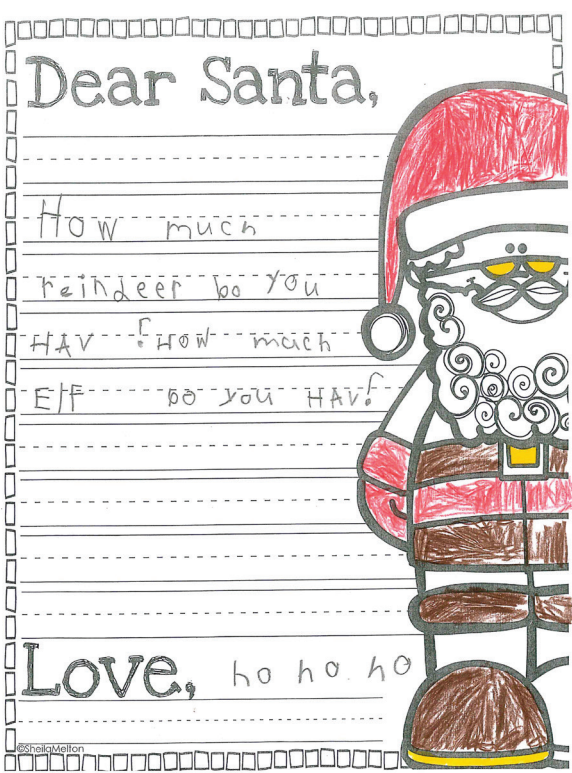 Dear Santa,
How much
reindeer bo you
HAV ? How much
Elf Do you HAV?
Love, ho ho ho
©SheilaMelton